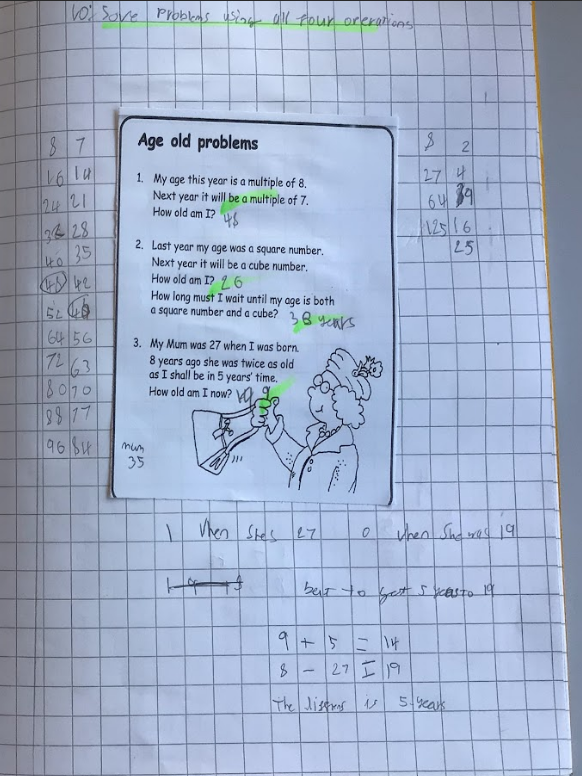 LO: Solve problems using all four operations
8 7
16 14
24 21
36 28
40 35
48 42
52 48
64 56
72 63
80 70
88 77
96 84
Age old problems
1. My age this year is a multiple of 8.
Next year it will be a multiple of 7.
How old am I? 48
2. Last year my age was a square number.
Next year it will be a cube number.
How old am I? 26
How long must I wait until my age is both
a square number and a cube? 38 years
3. My Mum was 27 when I was born.
8 years ago she was twice as old
as I shall be in 5 years' time.
How old am I now? 9
mum
35
8 2
27 4
64 9
125 16
25
1 When she's 27 0 when she was 19
but to get 5 to 19
9 + 5 = 14
8 - 27 = 19
The is 5 years